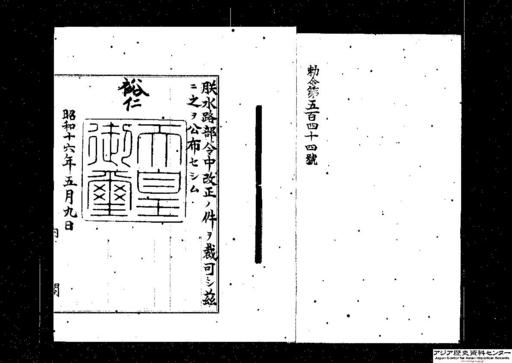 勅令第五百四十四號
朕水路部令中改正ノ件ヲ裁可シ茲
ニ之ヲ公布セシム
裕仁
天皇
御璽
昭和十六年五月九日
内閣
アジア歴史資料センター
Japan Center for Asian Historical Records